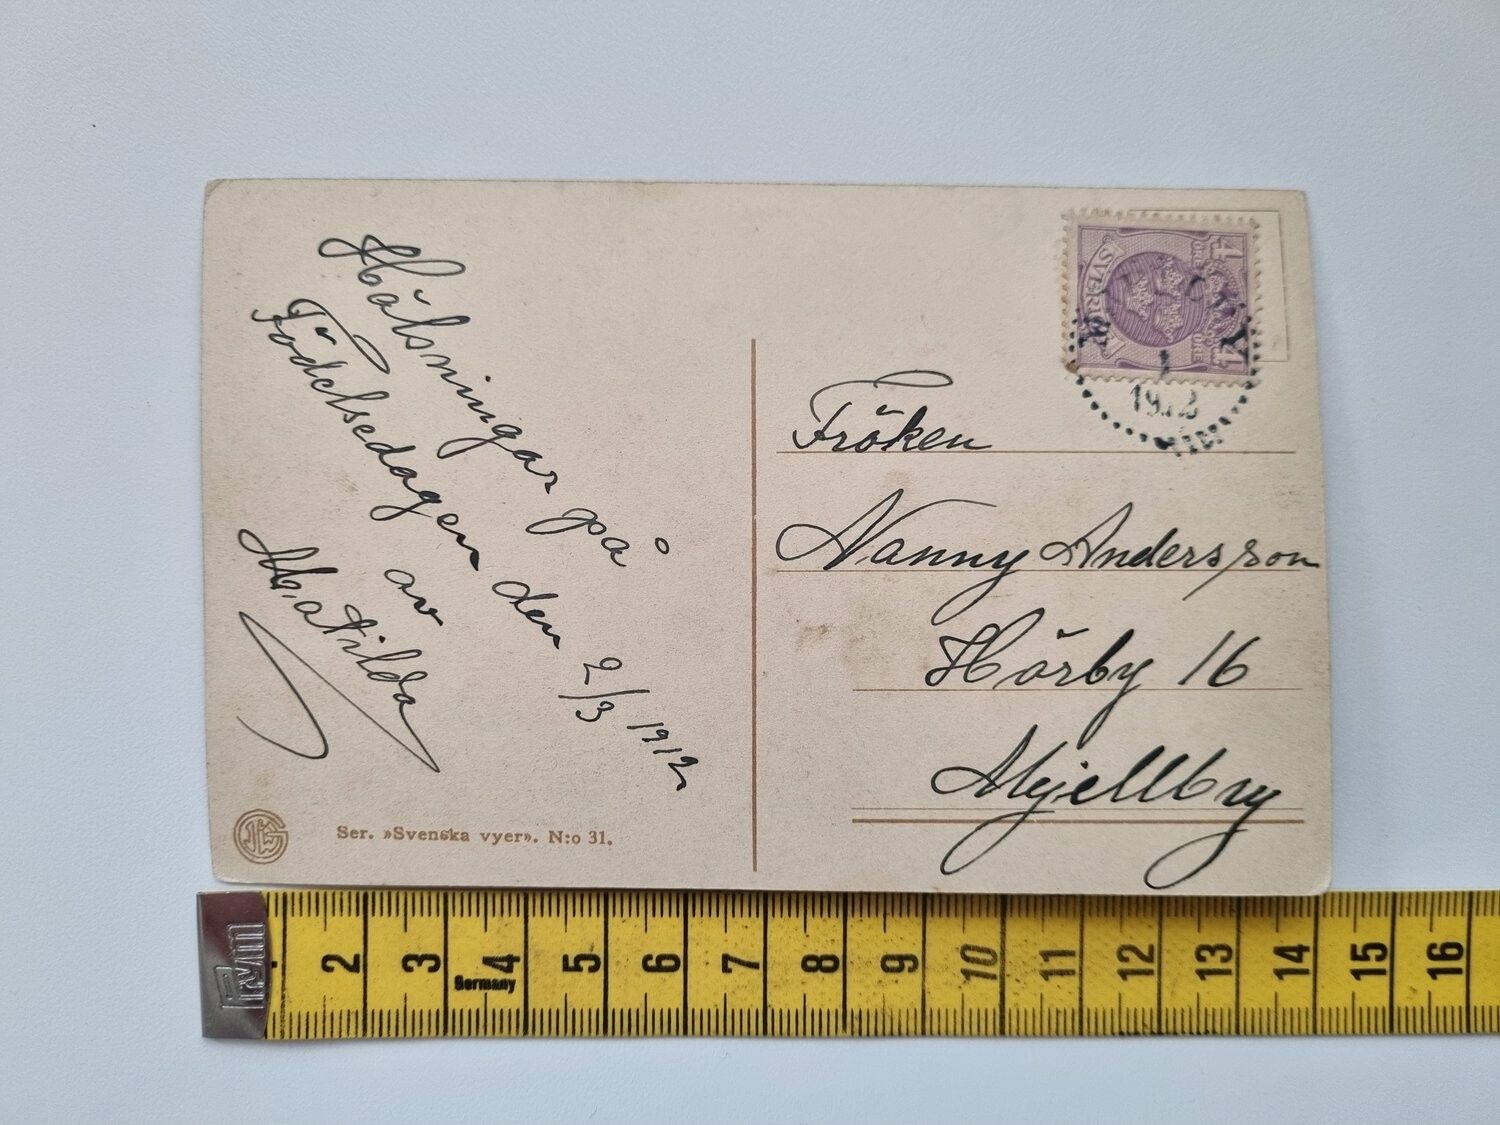 Hälsningar på
Födelsedagen den 2/3 1912
av
Matilda
Ser. »Svenska vyer». N:o 31.
4 ÖRE
SVERIGE
4 ÖRE
1912
Fröken
Nanny Andersson
Hörby 16
Mjellby
Prym
2 3 4 5 6 7 8 9 10 11 12 13 14 15 16
Germany